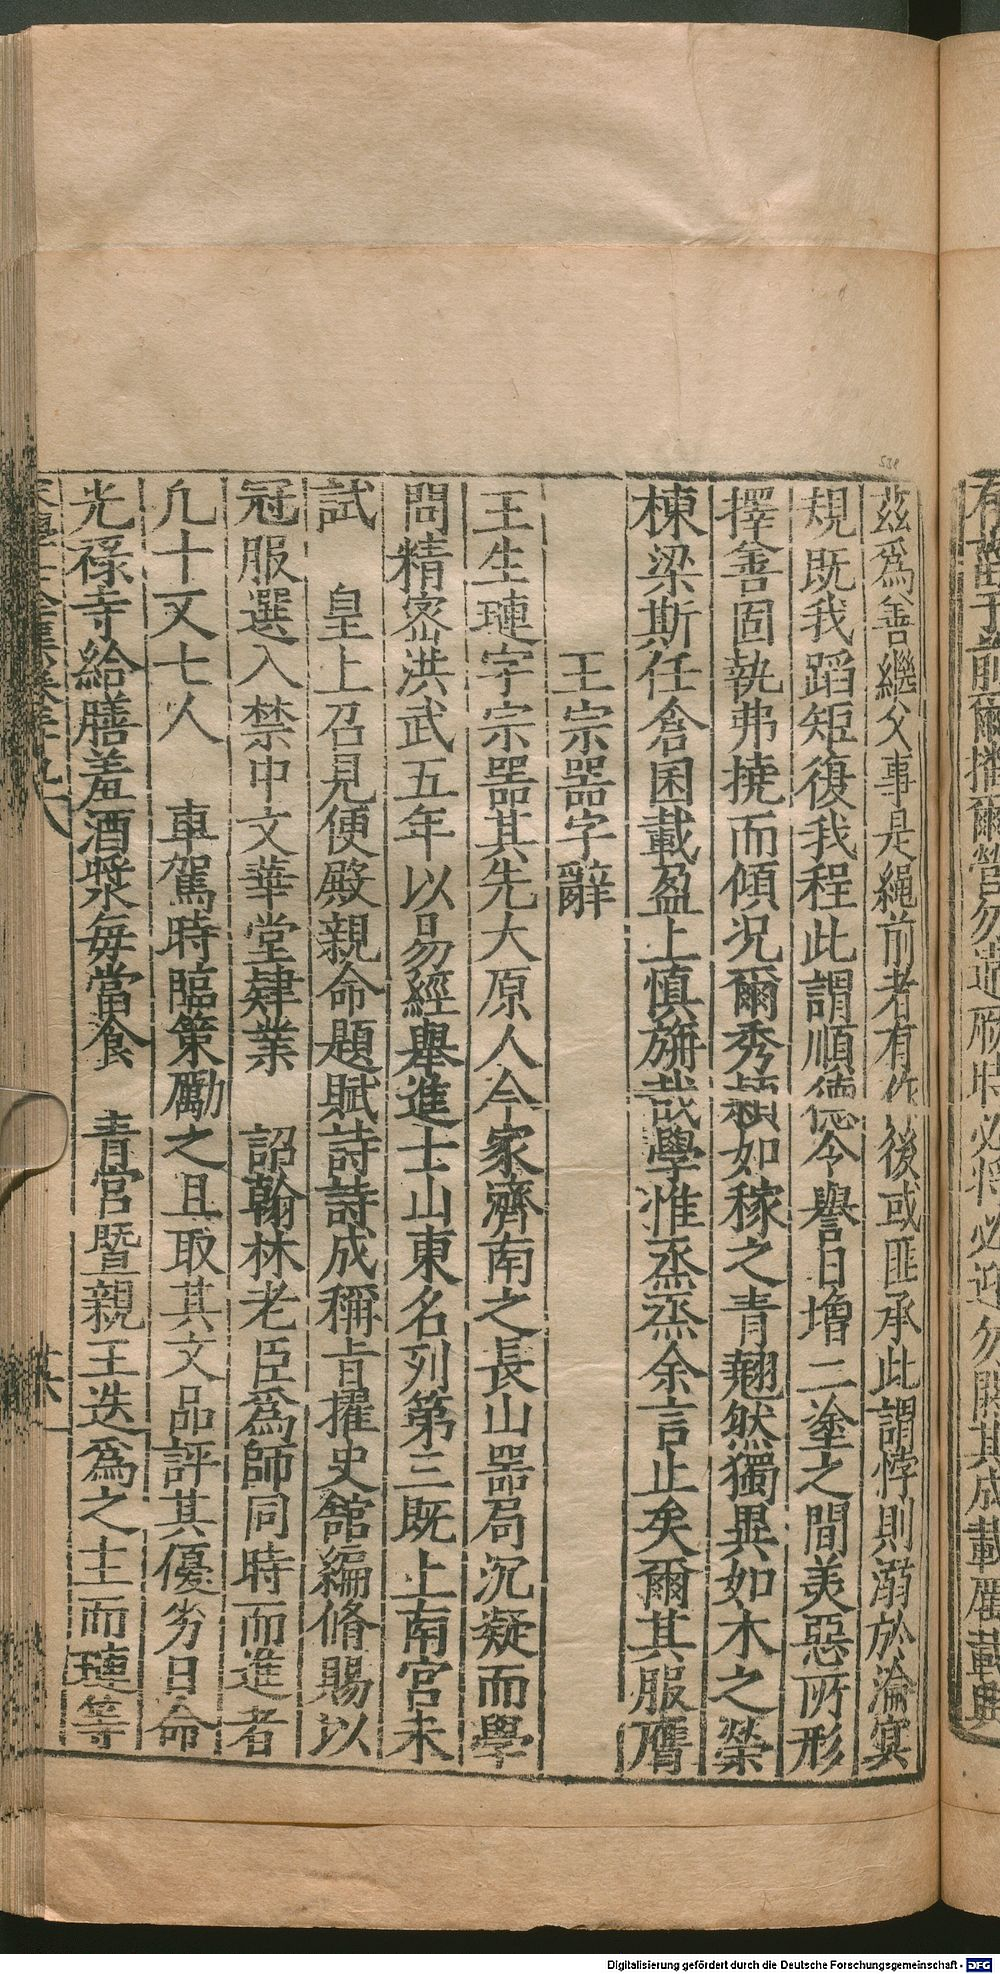 茲爲善繼父事是繩前者有作後或匪承此謂悖則溺於淪寞
規既我蹈矩復我程此謂順德令譽日增二塗之間美惡所形
擇善固執弗撓而傾況爾秀穎如稼之青翹然獨異如木之榮
棟梁斯任倉囷載盈上慎旃哉學惟烝烝余言止矣爾其服膺
王宗器字辭
王生璉字宗器其先大原人今家濟南之長山器局沉凝而學
問精密洪武五年以易經舉進士山東名列第三既上南宮未
試 皇上召見便殿親命題賦詩詩成稱旨擢史舘編脩賜以
冠服選入禁中文華堂肄業 詔翰林老臣爲師同時而進者
凡十又七人 車駕時臨策勵之且取其文品評其優劣日命
光祿寺給膳羞酒漿每當食 青宮暨親王迭爲之主而璉等
Digitalisierung gefördert durch die Deutsche Forschungsgemeinschaft - DFG